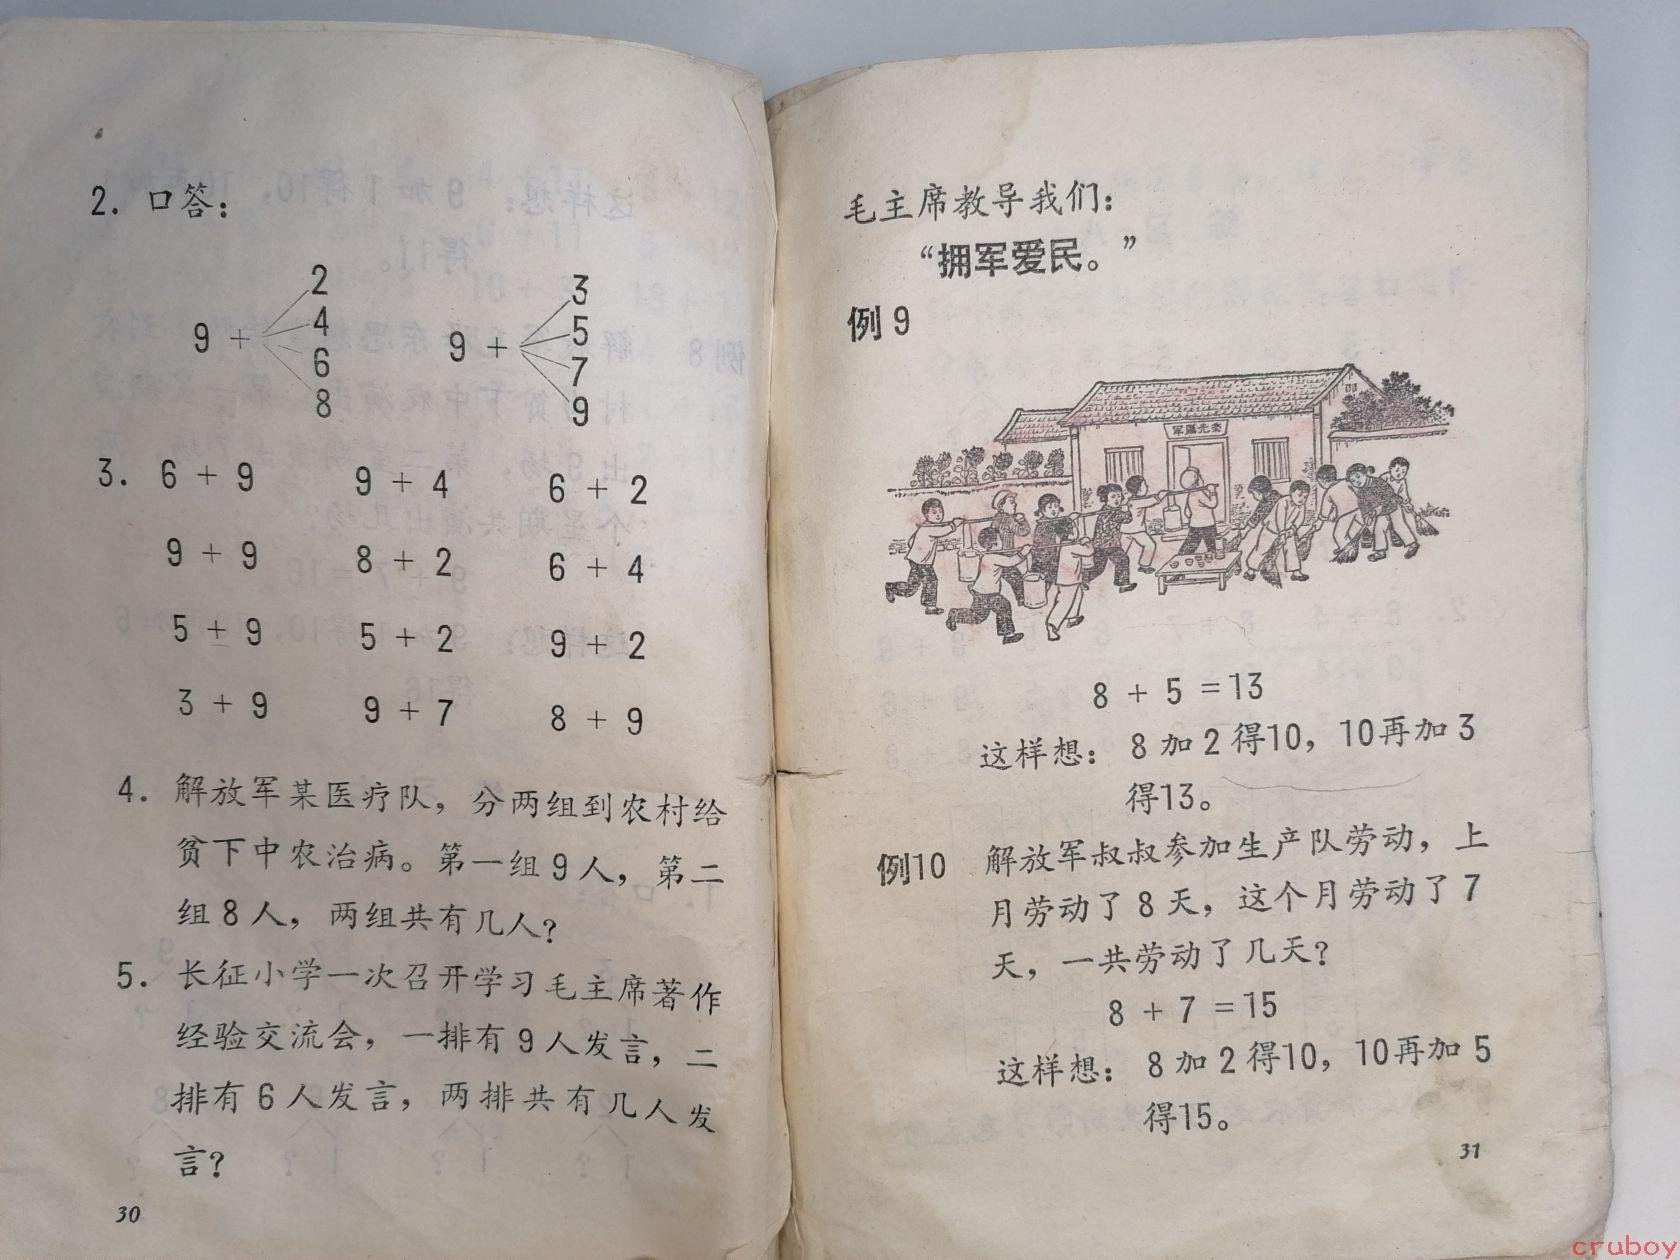 2. 口答：
9 + 2 4 6 8
9 + 3 5 7 9
3. 6 + 9 9 + 4 6 + 2
9 + 9 8 + 2 6 + 4
5 + 9 5 + 2 9 + 2
3 + 9 9 + 7 8 + 9
4. 解放军某医疗队，分两组到农村给
贫下中农治病。第一组9人，第二
组8人，两组共有几人？
5. 长征小学一次召开学习毛主席著作
经验交流会，一排有9人发言，二
排有6人发言，两排共有几人发
言？
30
毛主席教导我们：
“拥军爱民。”
例9
军属光荣
8 + 5 = 13
这样想： 8加2得10，10再加3
得13。
例10 解放军叔叔参加生产队劳动，上
月劳动了8天，这个月劳动了7
天，一共劳动了几天？
8 + 7 = 15
这样想： 8加2得10，10再加5
得15。
31
cruboy